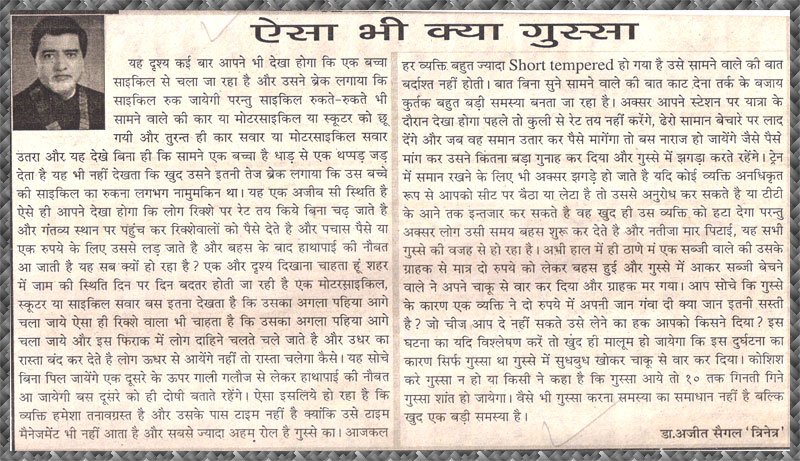 ऐसा भी क्या गुस्सा
यह दृश्य कई बार आपने भी देखा होगा कि एक बच्चा
साइकिल से चला जा रहा है और उसने ब्रेक लगाया कि
साइकिल रुक जायेगी परन्तु साइकिल रुकते-रुकते भी
सामने वाले की कार या मोटरसाइकिल या स्कूटर को छू
गयी और तुरन्त ही कार सवार या मोटरसाइकिल सवार
उतरा और यह देखे बिना ही कि सामने एक बच्चा है धाड़ से एक थप्पड़ जड़
देता है यह भी नहीं देखता कि खुद उसने इतनी तेज ब्रेक लगाया कि उस बच्चे
की साइकिल का रुकना लगभग नामुमकिन था। यह एक अजीब सी स्थिति है
ऐसे ही आपने देखा होगा कि लोग रिक्शे पर रेट तय किये बिना चढ़ जाते है
और गंतव्य स्थान पर पहुंच कर रिक्शेवालों को पैसे देते है और पचास पैसे या
एक रुपये के लिए उससे लड़ जाते है और बहस के बाद हाथापाई की नौबत
आ जाती है यह सब क्यों हो रहा है? एक और दृश्य दिखाना चाहता हूं शहर
में जाम की स्थिति दिन पर दिन बदतर होती जा रही है एक मोटरसाइकिल,
स्कूटर या साइकिल सवार बस इतना देखता है कि उसका अगला पहिया आगे
चला जाये ऐसा ही रिक्शे वाला भी चाहता है कि उसका अगला पहिया आगे
चला जाये और इस फिराक में लोग दाहिने चलते चले जाते है और उधर का
रास्ता बंद कर देते है लोग ऊधर से आयेंगे नहीं तो रास्ता चलेगा कैसे। यह सोचे
बिना पिल जायेंगे एक दूसरे के ऊपर गाली गलौज से लेकर हाथापाई की नौबत
आ जायेगी बस दूसरे को ही दोषी बताते रहेंगे। ऐसा इसलिये हो रहा है कि
व्यक्ति हमेशा तनावग्रस्त है और उसके पास टाइम नहीं है क्योंकि उसे टाइम
मैनेजमेंट भी नहीं आता है और सबसे ज्यादा अहम् रोल है गुस्से का। आजकल
हर व्यक्ति बहुत ज्यादा Short tempered हो गया है उसे सामने वाले की बात
बर्दाश्त नहीं होती। बात बिना सुने सामने वाले की बात काट देना तर्क के बजाय
कुर्तक बहुत बड़ी समस्या बनता जा रहा है। अक्सर आपने स्टेशन पर यात्रा के
दौरान देखा होगा पहले तो कुली से रेट तय नहीं करेंगे, ढेरो सामान बेचारे पर लाद
देंगे और जब वह समान उतार कर पैसे मागेंगा तो बस नाराज हो जायेंगे जैसे पैसे
मांग कर उसने कितना बड़ा गुनाह कर दिया और गुस्से में झगड़ा करते रहेंगे। ट्रेन
में समान रखने के लिए भी अक्सर झगड़े हो जाते है यदि कोई व्यक्ति अनधिकृत
रूप से आपको सीट पर बैठा या लेटा है तो उससे अनुरोध कर सकते है या टीटी
के आने तक इन्तजार कर सकते है वह खुद ही उस व्यक्ति को हटा देगा परन्तु
अक्सर लोग उसी समय बहस शुरू कर देते है और नतीजा मार पिटाई, यह सभी
गुस्से की वजह से हो रहा है। अभी हाल में ही ठाणे में एक सब्जी वाले की उसके
ग्राहक से मात्र दो रुपये को लेकर बहस हुई और गुस्से में आकर सब्जी बेचने
वाले ने अपने चाकू से वार कर दिया और ग्राहक मर गया। आप सोचे कि गुस्से
के कारण एक व्यक्ति ने दो रुपये में अपनी जान गंवा दी क्या जान इतनी सस्ती
है? जो चीज आप दे नहीं सकते उसे लेने का हक आपको किसने दिया? इस
घटना का यदि विश्लेषण करें तो खुद ही मालूम हो जायेगा कि इस दुर्घटना का
कारण सिर्फ गुस्सा था गुस्से में सुधबुध खोकर चाकू से वार कर दिया। कोशिश
करे गुस्सा न हो या किसी ने कहा है कि गुस्सा आये तो १० तक गिनती गिने
गुस्सा शांत हो जायेगा। वैसे भी गुस्सा करना समस्या का समाधान नहीं है बल्कि
खुद एक बड़ी समस्या है।
डा.अजीत सैगल 'त्रिनेत्र'